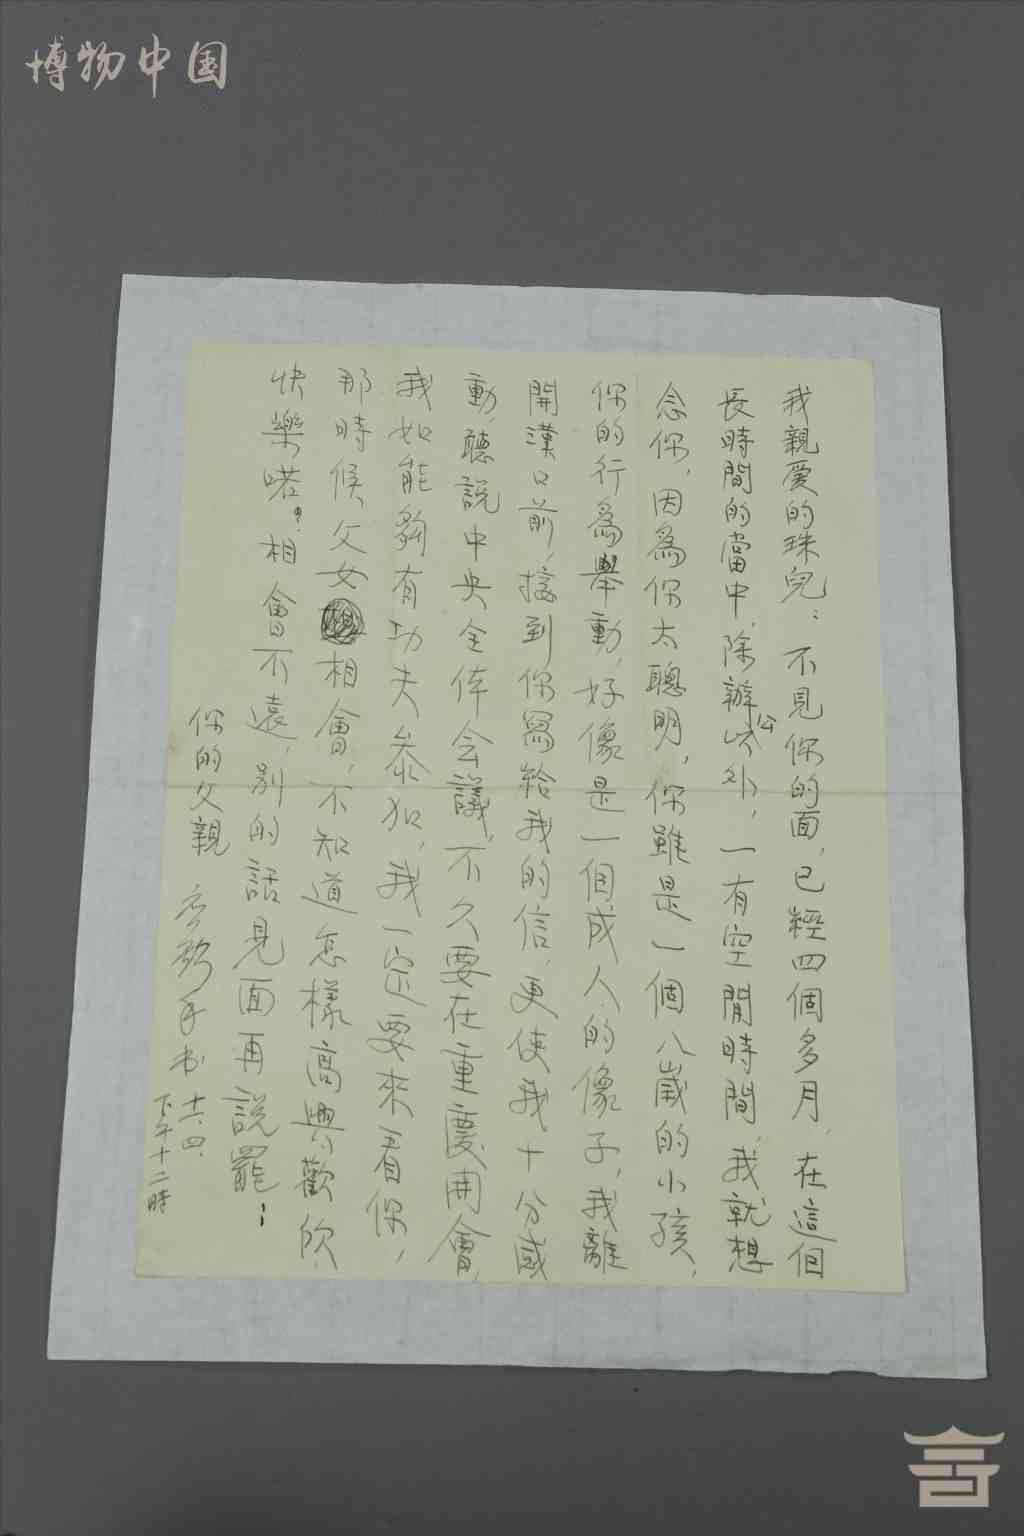 博物中国
我親愛的珠兒：不見你的面，已經四個多月，在這個
長時間的當中，除辦公以外，一有空閒時間，我就想
念你，因為你太聰明，你雖是一個八歲的小孩，
你的行為舉動，好像是一個成人的像子，我離
開漢口前，接到你寫給我的信，更使我十分感
動，聽說中央全体会議，不久要在重慶開會，
我如能夠有功夫參加，我一定要來看你，
那時候父女相會，不知道怎樣高興歡欣
快樂喏。相會不遠，別的話見面再說罷！
你的父親 手书 十六、四、
下午十二時